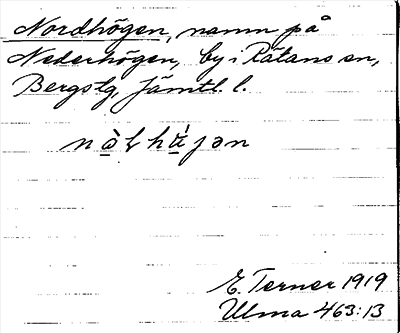 Nordhögen, namn på
Nederhögen, by i Rätans sn,
Bergs tg, Jämtl. l.
E. Terner 1919
Ulma 463:13